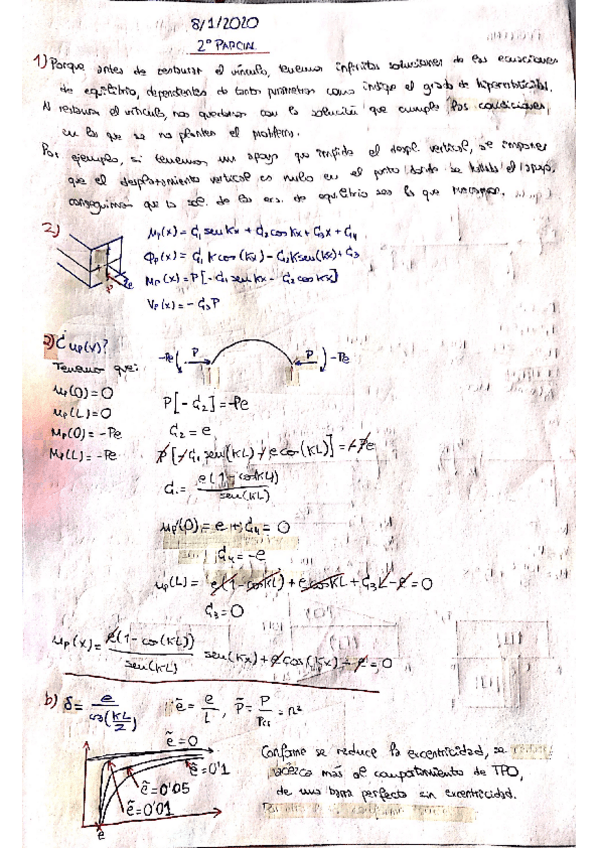 8/1/2020
2º PARCIAL
1) Porque antes de restaurar el vínculo, tenemos infinitas soluciones de las ecuaciones
de equilibrio, dependientes de tantos parámetros como indique el grado de hiperestaticidad.
Al restaurar el vínculo, nos quedamos con la solución que cumple las condiciones
en las que se nos plantea el problema.
Por ejemplo, si tenemos un apoyo que impide el despl. vertical, se impone
que el desplazamiento vertical es nulo en el punto donde se hallaba el apoyo,
conseguimos que la sol. de las ecs. de equilibrio sea la que
2)
Mp(x) = C₁ sen Kx + C₂ cos Kx + C₃x + C₄
Φp(x) = C₁ K cos(Kx) - C₂ K sen(Kx) + C₃
Mp(x) = P[-C₁ sen Kx - C₂ cos Kx]
Vp(x) = -C₃P
a) ¿up(x)?
Tenemos que:
-Pe P P -Pe
up(0) = 0
up(L) = 0
Mp(0) = -Pe
Mp(L) = -Pe
P[-C₂] = -Pe
C₂ = e
P[-C₁ sen(KL) - e cos(KL)] = -Pe
C₁ = e(1 - cos KL) / sen(KL)
up(0) = e + C₄ = 0
C₄ = -e
up(L) = e(1 - cos KL) + e cos KL + C₃L - e = 0
C₃ = 0
up(x) = e(1 - cos(KL)) / sen(KL) sen(Kx) + e cos(Kx) - e = 0
b) δ = e / cos(KL/2) ẽ = e/L , P̃ = P/Pcr = n²
ẽ = 0
ẽ = 0'1
ẽ = 0'05
ẽ = 0'01
e
Conforme se reduce la excentricidad, se
acerca más al comportamiento de TPO,
de una barra perfecta sin excentricidad.